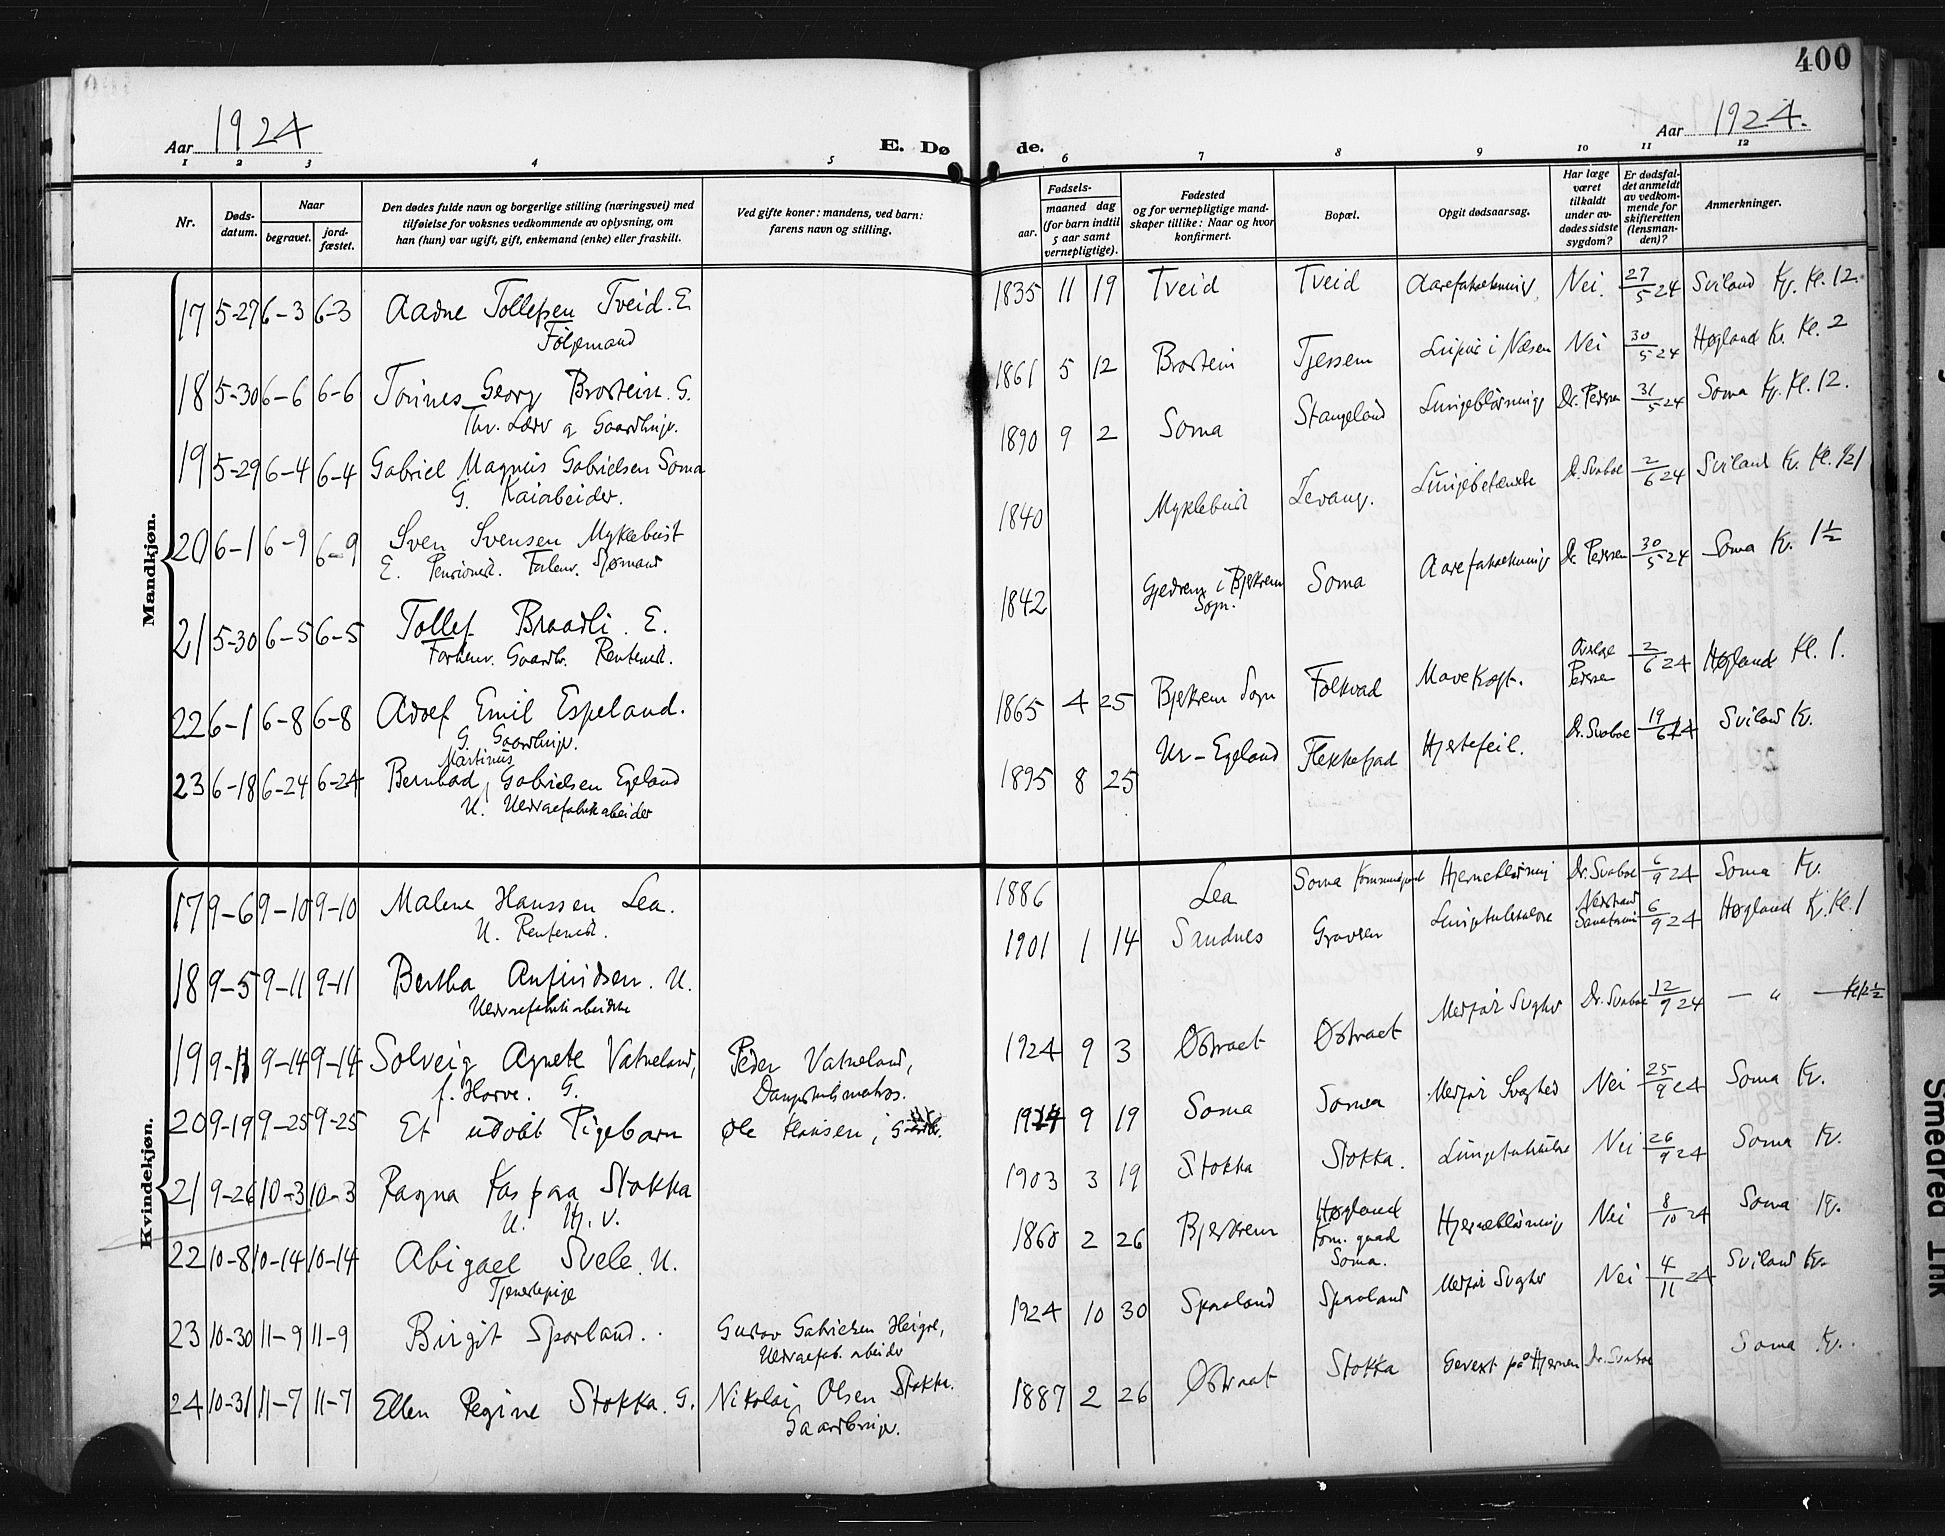 400
Aar 1924
E. Dø
de.
Aar 1924.
1 2 3 4 5
6 7 8 9 10 11 12
Nr.
Døds-
datum.
Naar
begravet.
jord-
fæstet.
Den dødes fulde navn og borgerlige stilling (næringsvei) med
tilføielse for voksnes vedkommende av oplysning, om
han (hun) var ugift, gift, enkemand (enke) eller fraskilt.
Ved gifte koner: mandens, ved barn:
farens navn og stilling.
Fødsels-
aar.
maaned dag
(for barn indtil
5 aar samt
vernepligtige).
Fødested
og for vernepligtige mand-
skaper tillike: Naar og hvor
konfirmert.
Bopæl.
Opgit dødsaarsag.
Har læge
været
tilkaldt
under av-
dødes sidste
sygdom?
Er dødsfal-
det anmeldt
av vedkom-
mende for
skifteretten
(lensman-
den)?
Anmerkninger.
Mandkjøn.
17 5-27 6-3 6-3 Aadne Tollefsen Tveid. E
Følgemand
1835 11 19 Tveid Tveid Aareforkalkning. Nei. 27/5 24 Sviland Kg. Kl. 12.
18 5-30 6-6 6-6 Tønnes Georg Brostein. G.
Thv. Lærer og Gaardbrugr.
1861 5 12 Brostein Tjessem Lupus i Næsen Nei 30/5 24 Høgland K. Kl. 2
19 5-29 6-4 6-4 Gabriel Magnus Gabrielsen Soma
G. Kaiarbeider.
1890 9 2 Soma Stangeland Lungeblødning Dr. Pedersen 31/5 24 Soma Kg. Kl. 12.
20 6-1 6-9 6-9 Sven Svensen Myklebust
E. Pensionist. Forhenv. Sjømand
1840 Myklebust Levang. Lungebetændelse Dr. Svaboe 2/6 24 Sviland K. Kl. 1/2 1
21 5-30 6-5 6-5 Tollef Braadli. E.
Forhenv. Gaardbr. Rentenist.
1842 Gjedrem i Bjerkrem
Sogn.
Soma Aareforkalkning Dr. Pedersen 30/5 24 Soma K. 1 1/2
22 6-1 6-8 6-8 Adolf Emil Espeland.
G. Gaardbrugr.
1865 4 25 Bjerkrem Sogn Folkvad Mavekræft.
Pedersen 2/6 24 Høgland Kl. 1.
23 6-18 6-24 6-24 Bernhad Martinus Gabrielsen Egeland
U. Uldvarefabrikarbeider
1895 8 25 Ur-Egeland Flekkefjord Hjertefeil. Dr. Svaboe 19/6 24 Sviland K.
Kvindekjøn.
17 9-6 9-10 9-10 Malene Hanssen Lea.
U. Rentenist.
1886 Lea Soma Hjerneblødning Dr. Svaboe 6/9 24 Soma K.
18 9-5 9-11 9-11 Bertha Anfindsen. U.
Uldvarefabrikarbeiderske
1901 1 14 Sandnes Gravsen Lungetuberkulose
Sanatorium 6/9 24 Høgland K. Kl. 1
19 9-11 9-14 9-14 Solveig Agnete Vatneland,
f. Horve. G.
Peder Vatneland,
Dampskibsmatros.
1924 9 3 Østraat Østraat Medfør Svaghet Dr. Svaboe 12/9 24 — " —
20 9-19 9-25 9-25 Et udøbt Pigebarn Ole Hansen, Gaardbr.
1924 9 19 Soma Soma Medfør Svaghed Nei 25/9 24 Soma K.
21 9-26 10-3 10-3 Ragna Kaspara Stokka
U. Hj. V.
1903 3 19 Stokka Stokka. Lungetuberkulose Nei 26/9 24 Soma K.
22 10-8 10-14 10-14 Abigael Svele. U.
Tjenestepige
1860 2 26 Bjerkrem Høgland
Kom. gaard
Soma.
Hjerneblødning Nei 8/10 24 Soma K.
23 10-30 11-9 11-9 Birgit Sporland.
Gustav Gabrielsen Heigre,
Uldvarefab. arbeider
1924 10 30 Sporaland Sporaland Medfør Svaghet Nei 4/11 24 Sviland K.
24 10-31 11-7 11-7 Ellen Regine Stokka. G. Nikolai Olsen Stokka.
Gaardbrugr.
1887 2 26 Østraat Stokka Gevext på Hjernen Dr. Svaboe Soma K.
Smedred Ink